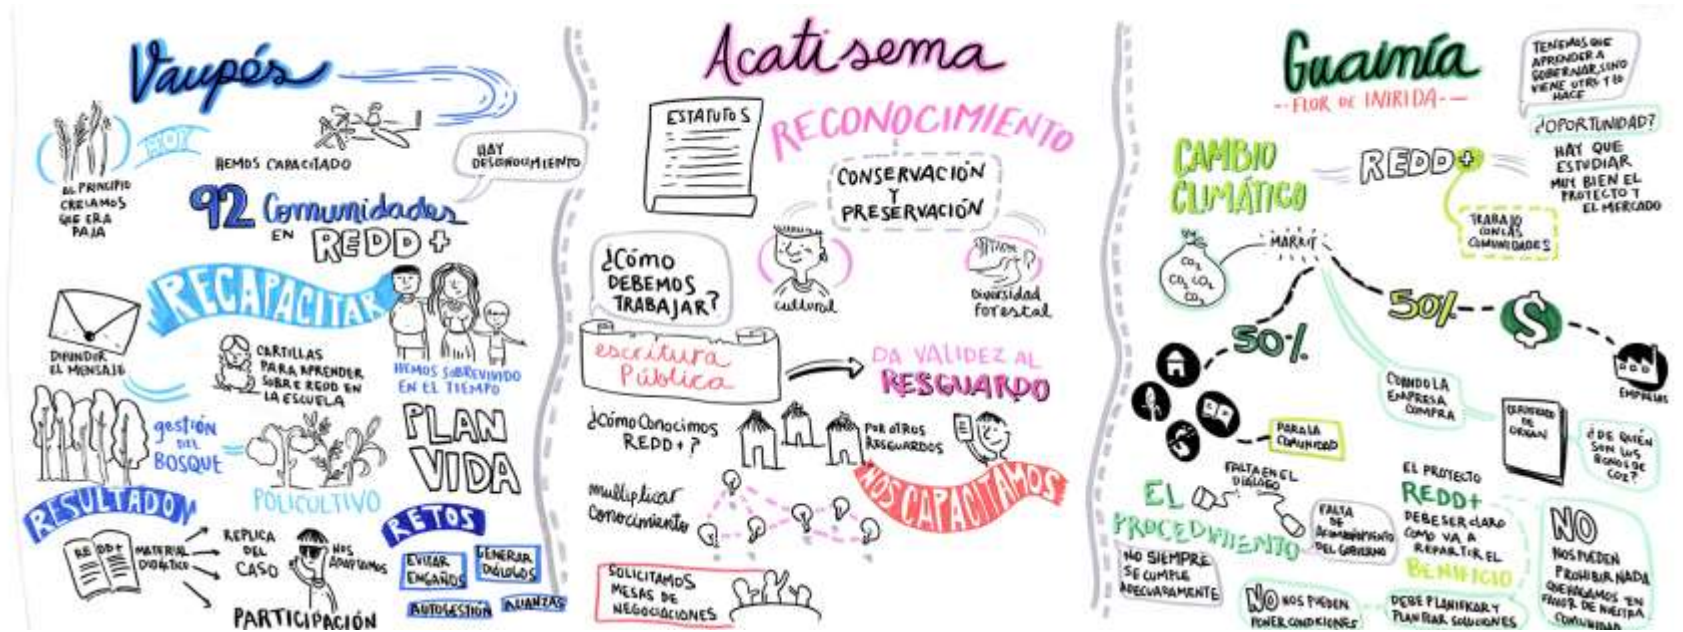 Vaupés
AL PRINCIPIO
CREIAMOS
QUE ERA
PAJA
HOY
HEMOS CAPACITADO
HAY
DESCONOCIMIENTO
92 Comunidades
EN REDD+
RECAPACITAR
DIFUNDIR
EL MENSAJE
CARTILLAS
PARA APRENDER
SOBRE REDD EN
LA ESCUELA
HEMOS SOBREVIVIDO
EN EL TIEMPO
gestión
DEL
BOSQUE
POLICULTIVO
PLAN
VIDA
RESULTADO
REDD+
MATERIAL
DIDÁCTICO
REPLICA
DEL
CASO
NOS
ADAPTAMOS
PARTICIPACIÓN
RETOS
EVITAR
ENGAÑOS
GENERAR
DIÁLOGOS
AUTOGESTIÓN
ALIANZAS
Acatisema
ESTATUTOS
RECONOCIMIENTO
CONSERVACIÓN
Y
PRESERVACIÓN
cultural
Diversidad
forestal
¿CÓMO
DEBEMOS
TRABAJAR?
escritura
Pública
DA VALIDEZ AL
RESGUARDO
¿Cómo Conocimos
REDD+?
POR OTROS
RESGUARDOS
NOS CAPACITAMOS
multiplicar
conocimiento
SOLICITAMOS
MESAS DE
NEGOCIACIONES
Guainía
-- FLOR DE INIRIDA --
TENEMOS QUE
APRENDER A
GOBERNAR, SINO
VIENE OTRO Y LO
HACE
¿OPORTUNIDAD?
HAY QUE
ESTUDIAR
MUY BIEN EL
PROYECTO Y
EL MERCADO
CAMBIO
CLIMÁTICO
REDD+
TRABAJO
CON LAS
COMUNIDADES
MARKIT
CO2
CO2 CO2
CO2
50%
50%
$
EMPRESAS
CUANDO LA
EMPRESA
COMPRA
CERTIFICADO
DE
ORIGEN
¿DE QUIÉN
SON LOS
BONOS DE
CO2?
PARA LA
COMUNIDAD
FALTA EN EL
DIÁLOGO
EL
PROCEDIMIENTO
NO SIEMPRE
SE CUMPLE
ADECUADAMENTE
FALTA
DE
ACOMPAÑAMIENTO
DEL GOBIERNO
EL PROYECTO
REDD+
DEBE SER CLARO
COMO VA A
REPARTIR EL
BENIFICIO
NO NOS PUEDEN
PONER CONDICIONES
DEBE PLANIFICAR Y
PLANTEAR SOLUCIONES
NO
NOS PUEDEN
PROHIBIR NADA
QUE HAGAMOS EN
FAVOR DE NUESTRA
COMUNIDAD